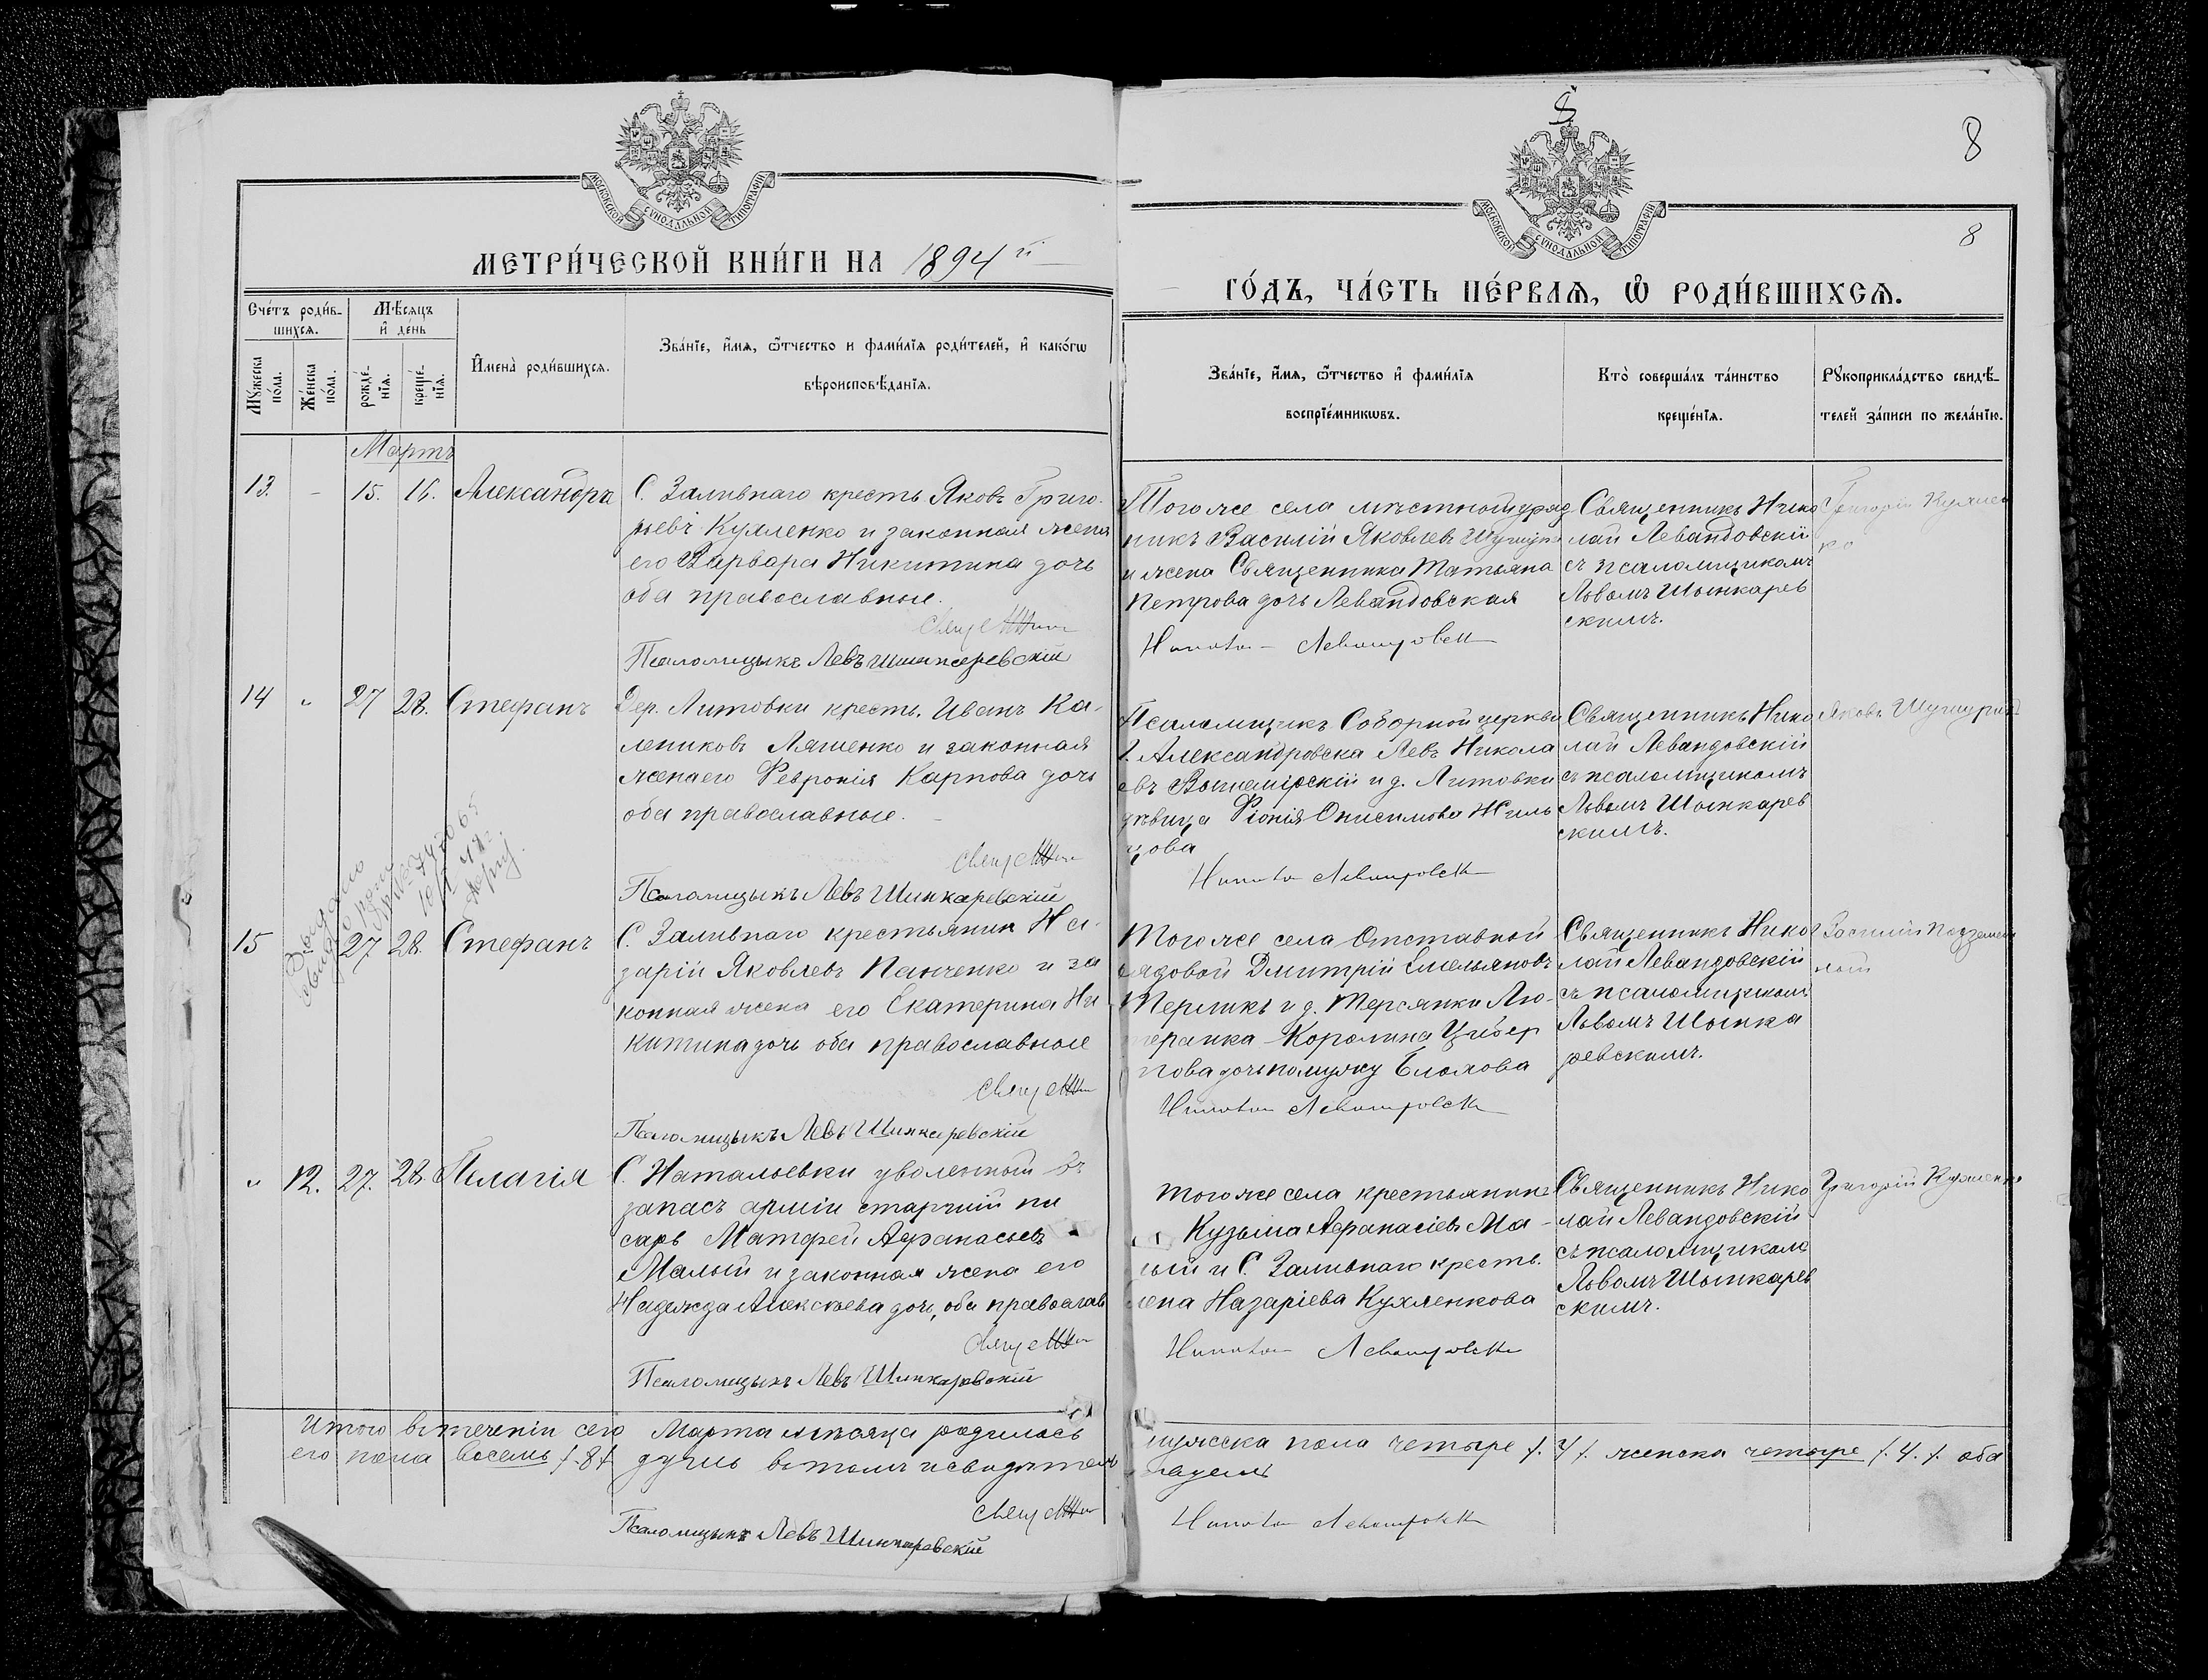 8
8
8
МОСКОВСКОЙ СУНОДАЛЬНОЙ ТИПОГРАФІИ
МОСКОВСКОЙ СУНОДАЛЬНОЙ ТИПОГРАФІИ
МЕТРИ́ЧЕСКОЙ КНИ́ГИ НА 1894й
ГО́ДЪ, ЧА́СТЬ ПЕ́РВАѦ, Ѿ РОДИ́ВШИХСѦ.
Сче́тъ роди́в-
шихсѧ.
Мꙋ́жеска пола.
Же́нска по́ла.
Мѣ́сяцъ
и҆ де́нь
рожде́-
нїѧ.
креще́-
нїѧ.
И҆мена̀ роди́вшихсѧ.
Зва́нїе, и҆́мѧ, ѻ҆́тчество и фами́лїѧ роди́телей, и҆ како́гѡ
вѣроисповѣ́данїѧ.
Зва́нїе, и҆́мѧ, ѻ҆́тчество и҆ фами́лїѧ
воспрїе́мникѡвъ.
Кто̀ соверша́лъ та́инство
креще́нїѧ.
Рꙋкоприкла́дство свидѣ́-
телей за́писи по жела́нїю.
Мартъ
13. - 15. 16. Александръ
С. Заливнаго кресть Яковъ Григо-
рьевъ Кухленко и законная жена
его Варвара Никитина дочь
оба православные.
Псаломщыкъ Левъ Шинкаревскій
Тогоже села мѣстной уряд
никъ Василій Яковлевъ
и жена Священника Татьяна
Петрова дочь Левандовская
Священникъ Нико
лай Левандовскій
съ псаломщикомъ
Львомъ Шынкарев
скимъ.
Григорій Кухлен
ко
14 „ 27 28. Стефанъ
Дер. Литовки кресть. Иванъ Ка-
лениковъ Ляшенко и законная
жена его Февронія Карпова дочь
оба православные.
Псаломщыкъ Левъ Шинкаревскій
Псаломщикъ Соборной церкви
г. Александровска Левъ Никола
евъ и д. Литовки
дѣвица Фіонія Онисимова Жиль
цова
Священникъ Нико
лай Левандовскій
съ псаломщикомъ
Львомъ Шынкарев
скимъ.
Яковъ
15 27 28. Стефанъ
С. Заливнаго крестьянин На-
зарій Яковлевъ Панченко и за
конная жена его Екатерина Ни
китина дочь оба православные
Псаломщыкъ Левъ Шинкаревскій
Тогоже села Отставной
рядовой Дмитрій Емельяновъ
и д. Терсянки Лю-
теранка Каролина
дочь по мужу
Священникъ Нико
лай Левандовскій
съ псаломщикомъ
Львомъ Шынка
ревскимъ.
Василій
„ 12. 27. 28. Пелагія
С. Натальевки уволенный въ
запасъ арміи старшій пи
сарь Матфей Афанасьевъ
Малый и законная жена его
Надежда Алексѣева дочь, оба православ
Псаломщыкъ Левъ Шинкаревскій
Тогоже села крестьянинъ
Кузьма Афанасіевъ Ма-
лый и С. Заливнаго кресть.
Назаріева Кухленкова
Священникъ Нико
лай Левандовскій
съ псаломщикомъ
Львомъ Шынкарев
скимъ.
Григорій Кухленко
Итого въ теченіи сего Марта мѣсяца родилось мужеска пола четыре /.4/. женска четыре /.4./. оба
его пола восемь /.8/. душъ въ томъ и свидѣтель
Псаломщыкъ Левъ Шинкаревскій